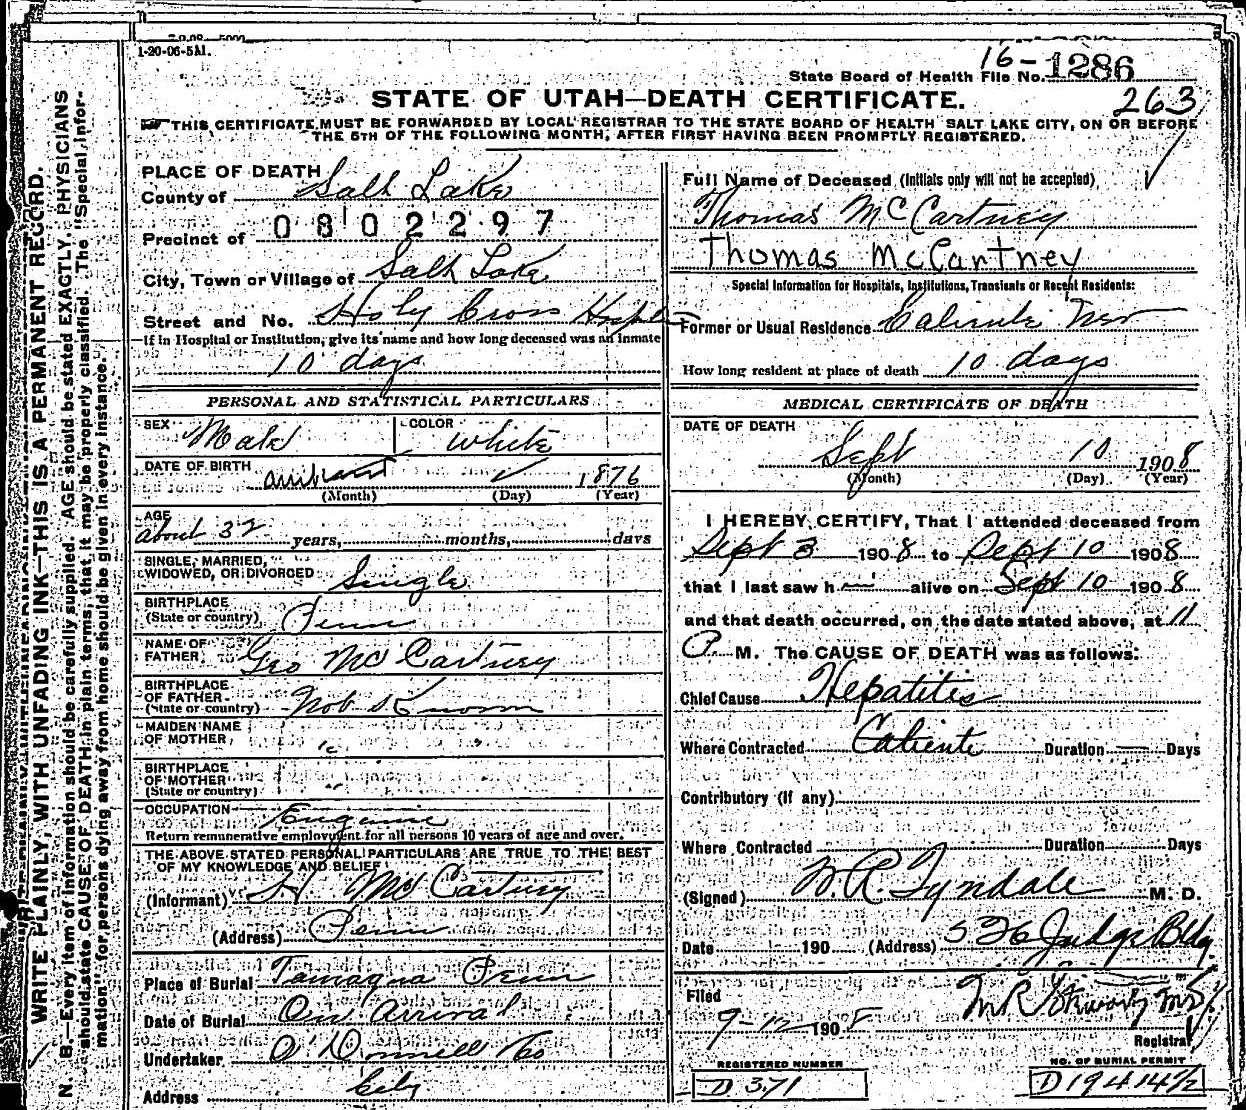 1-20-06-5M.
16-1286
State Board of Health File No.
263
STATE OF UTAH—DEATH CERTIFICATE.
THIS CERTIFICATE MUST BE FORWARDED BY LOCAL REGISTRAR TO THE STATE BOARD OF HEALTH SALT LAKE CITY, ON OR BEFORE
THE 5TH OF THE FOLLOWING MONTH, AFTER FIRST HAVING BEEN PROMPTLY REGISTERED.
WRITE PLAINLY, WITH UNFADING INK—THIS IS A PERMANENT RECORD.
N. B.—Every item of information should be carefully supplied. AGE should be stated EXACTLY. PHYSICIANS
should state CAUSE OF DEATH in plain terms, that it may be properly classified. The "Special Infor-
mation" for persons dying away from home should be given in every instance.
PLACE OF DEATH
County of Salt Lake
0802297
Precinct of
City, Town or Village of Salt Lake
Street and No. Holy Cross Hospl
If in Hospital or Institution, give its name and how long deceased was an inmate
10 days
PERSONAL AND STATISTICAL PARTICULARS
SEX Male COLOR White
DATE OF BIRTH 1876
(Month) (Day) (Year)
AGE
about 32 years, months, days
SINGLE, MARRIED,
WIDOWED, OR DIVORCED Single
BIRTHPLACE
(State or country) Penn
NAME OF
FATHER Geo McCartney
BIRTHPLACE
OF FATHER
(State or country) Not Known
MAIDEN NAME
OF MOTHER " "
BIRTHPLACE
OF MOTHER
(State or country) "
OCCUPATION
Return remunerative employment for all persons 10 years of age and over.
THE ABOVE STATED PERSONAL PARTICULARS ARE TRUE TO THE BEST
OF MY KNOWLEDGE AND BELIEF
(Informant) H McCartney
(Address) Penn
Place of Burial Tamaqua Penn
Date of Burial On Arrival
Undertaker O'Donnell & Co
Address City
Full Name of Deceased (Initials only will not be accepted)
Thomas McCartney
Thomas McCartney
Special Information for Hospitals, Institutions, Transients or Recent Residents:
Former or Usual Residence Caliente Nev
How long resident at place of death 10 days
MEDICAL CERTIFICATE OF DEATH
DATE OF DEATH
Sept 10 1908
(Month) (Day) (Year)
I HEREBY CERTIFY, That I attended deceased from
Sept 3 1908 to Sept 10 1908
that I last saw h im alive on Sept 10 1908
and that death occurred, on the date stated above, at 11
P. M. The CAUSE OF DEATH was as follows:
Chief Cause Hepatitis
Where Contracted Caliente Duration — Days
Contributory (if any)
Where Contracted Duration Days
(Signed) W. R. Tyndale M. D.
Date 190 (Address) 536 Judge Bldg
Filed
9-12 1908
Registrar
REGISTERED NUMBER
D 371
NO. OF BURIAL PERMIT
D 19414 1/2